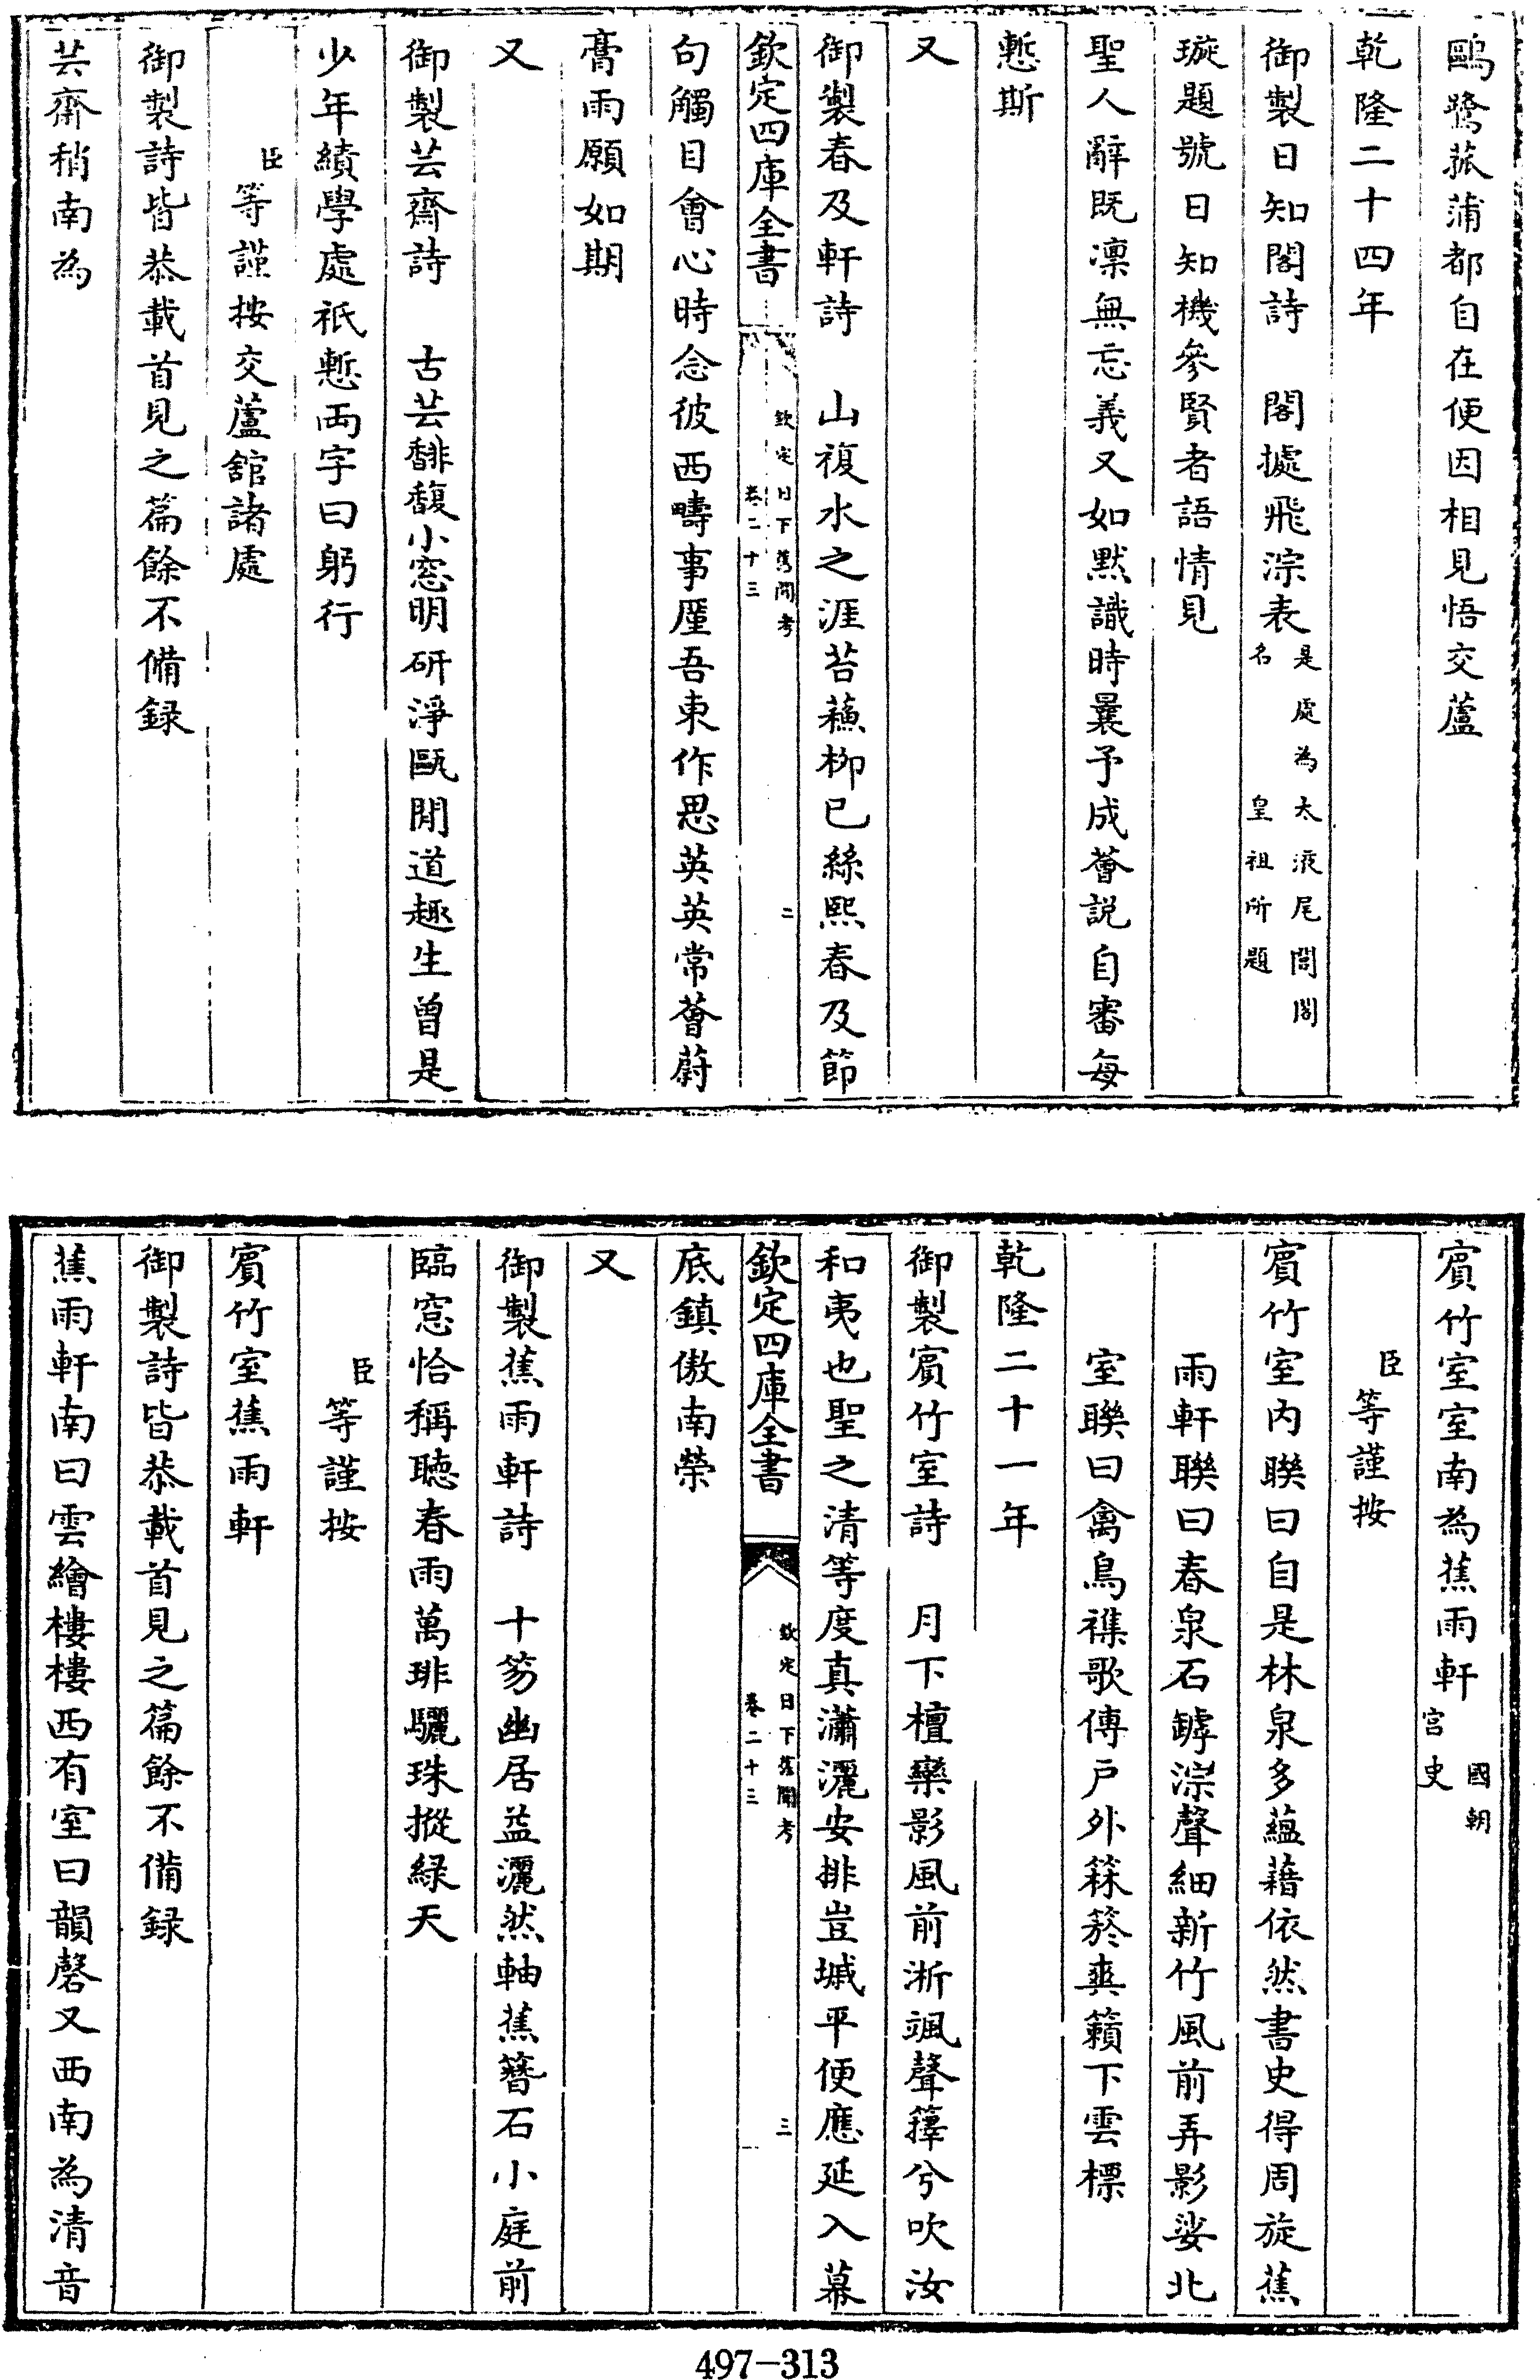 鷗鷺菰蒲都自在便因相見悟交蘆
乾隆二十四年
御製日知閣詩　閣㩀飛淙表是處為太液尾閭閣名　皇祖所題
璇題號日知機參賢者語情見
聖人辭既凜無忘義又如默識時曩予成薈說自審每
慙斯
又
御製春及軒詩　山複水之涯苔蘓栁已絲熙春及節
欽定四庫全書
欽定日下舊聞考
卷二十三
二
句觸目會心時念彼西疇事厪吾東作思英英常薈蔚
膏雨願如期
又
御製芸齋詩　古芸馡馥小窓明研淨甌閒道趣生曾是
少年績學處祇慙兩字曰躬行
臣等謹按交蘆館諸處
御製詩皆恭載首見之篇餘不備録
芸齋稍南為
賓竹室室南為蕉雨軒國朝宮史
臣等謹按
賓竹室内聯曰自是林泉多蘊藉依然書史得周旋蕉
雨軒聯曰春泉石罅淙聲細新竹風前弄影娑北
室聯曰禽鳥襍歌傳戶外箖箊爽籟下雲標
乾隆二十一年
御製賓竹室詩　月下檀欒影風前淅颯聲籜兮吹汝
和夷也聖之清等度真瀟灑安排豈墄平便應延入幕
欽定四庫全書
欽定日下舊聞考
卷二十三
三
底鎮傲南榮
又
御製蕉雨軒詩　十笏幽居益灑然軸蕉簪石小庭前
臨窓恰稱聽春雨萬琲驪珠摐綠天
臣等謹按
賓竹室蕉雨軒
御製詩皆恭載首見之篇餘不備録
蕉雨軒南曰雲繪樓樓西有室曰韻磬又西南為清音
497-313